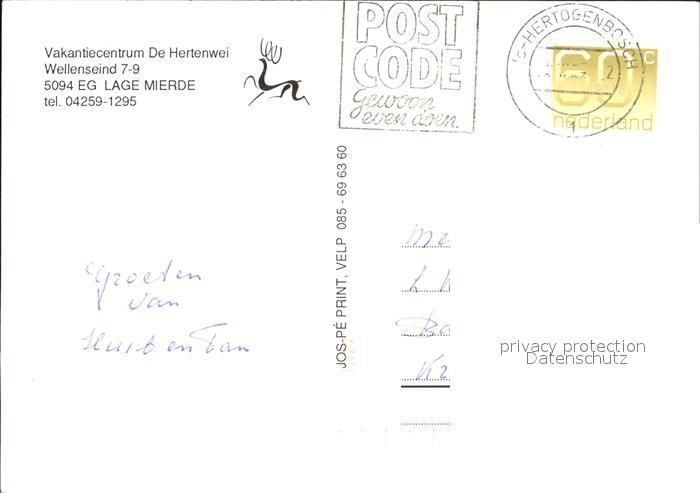 Vakantiecentrum De Hertenwei
Wellenseind 7-9
5094 EG LAGE MIERDE
tel. 04259-1295
POST
CODE
gewoon
even doen.
's-HERTOGENBOSCH
1
60 c
nederland
JOS-PÉ PRINT, VELP 085 - 69 63 60
Groeten
van
Huib en Tan
Me
Ba
Kr
privacy protection
Datenschutz